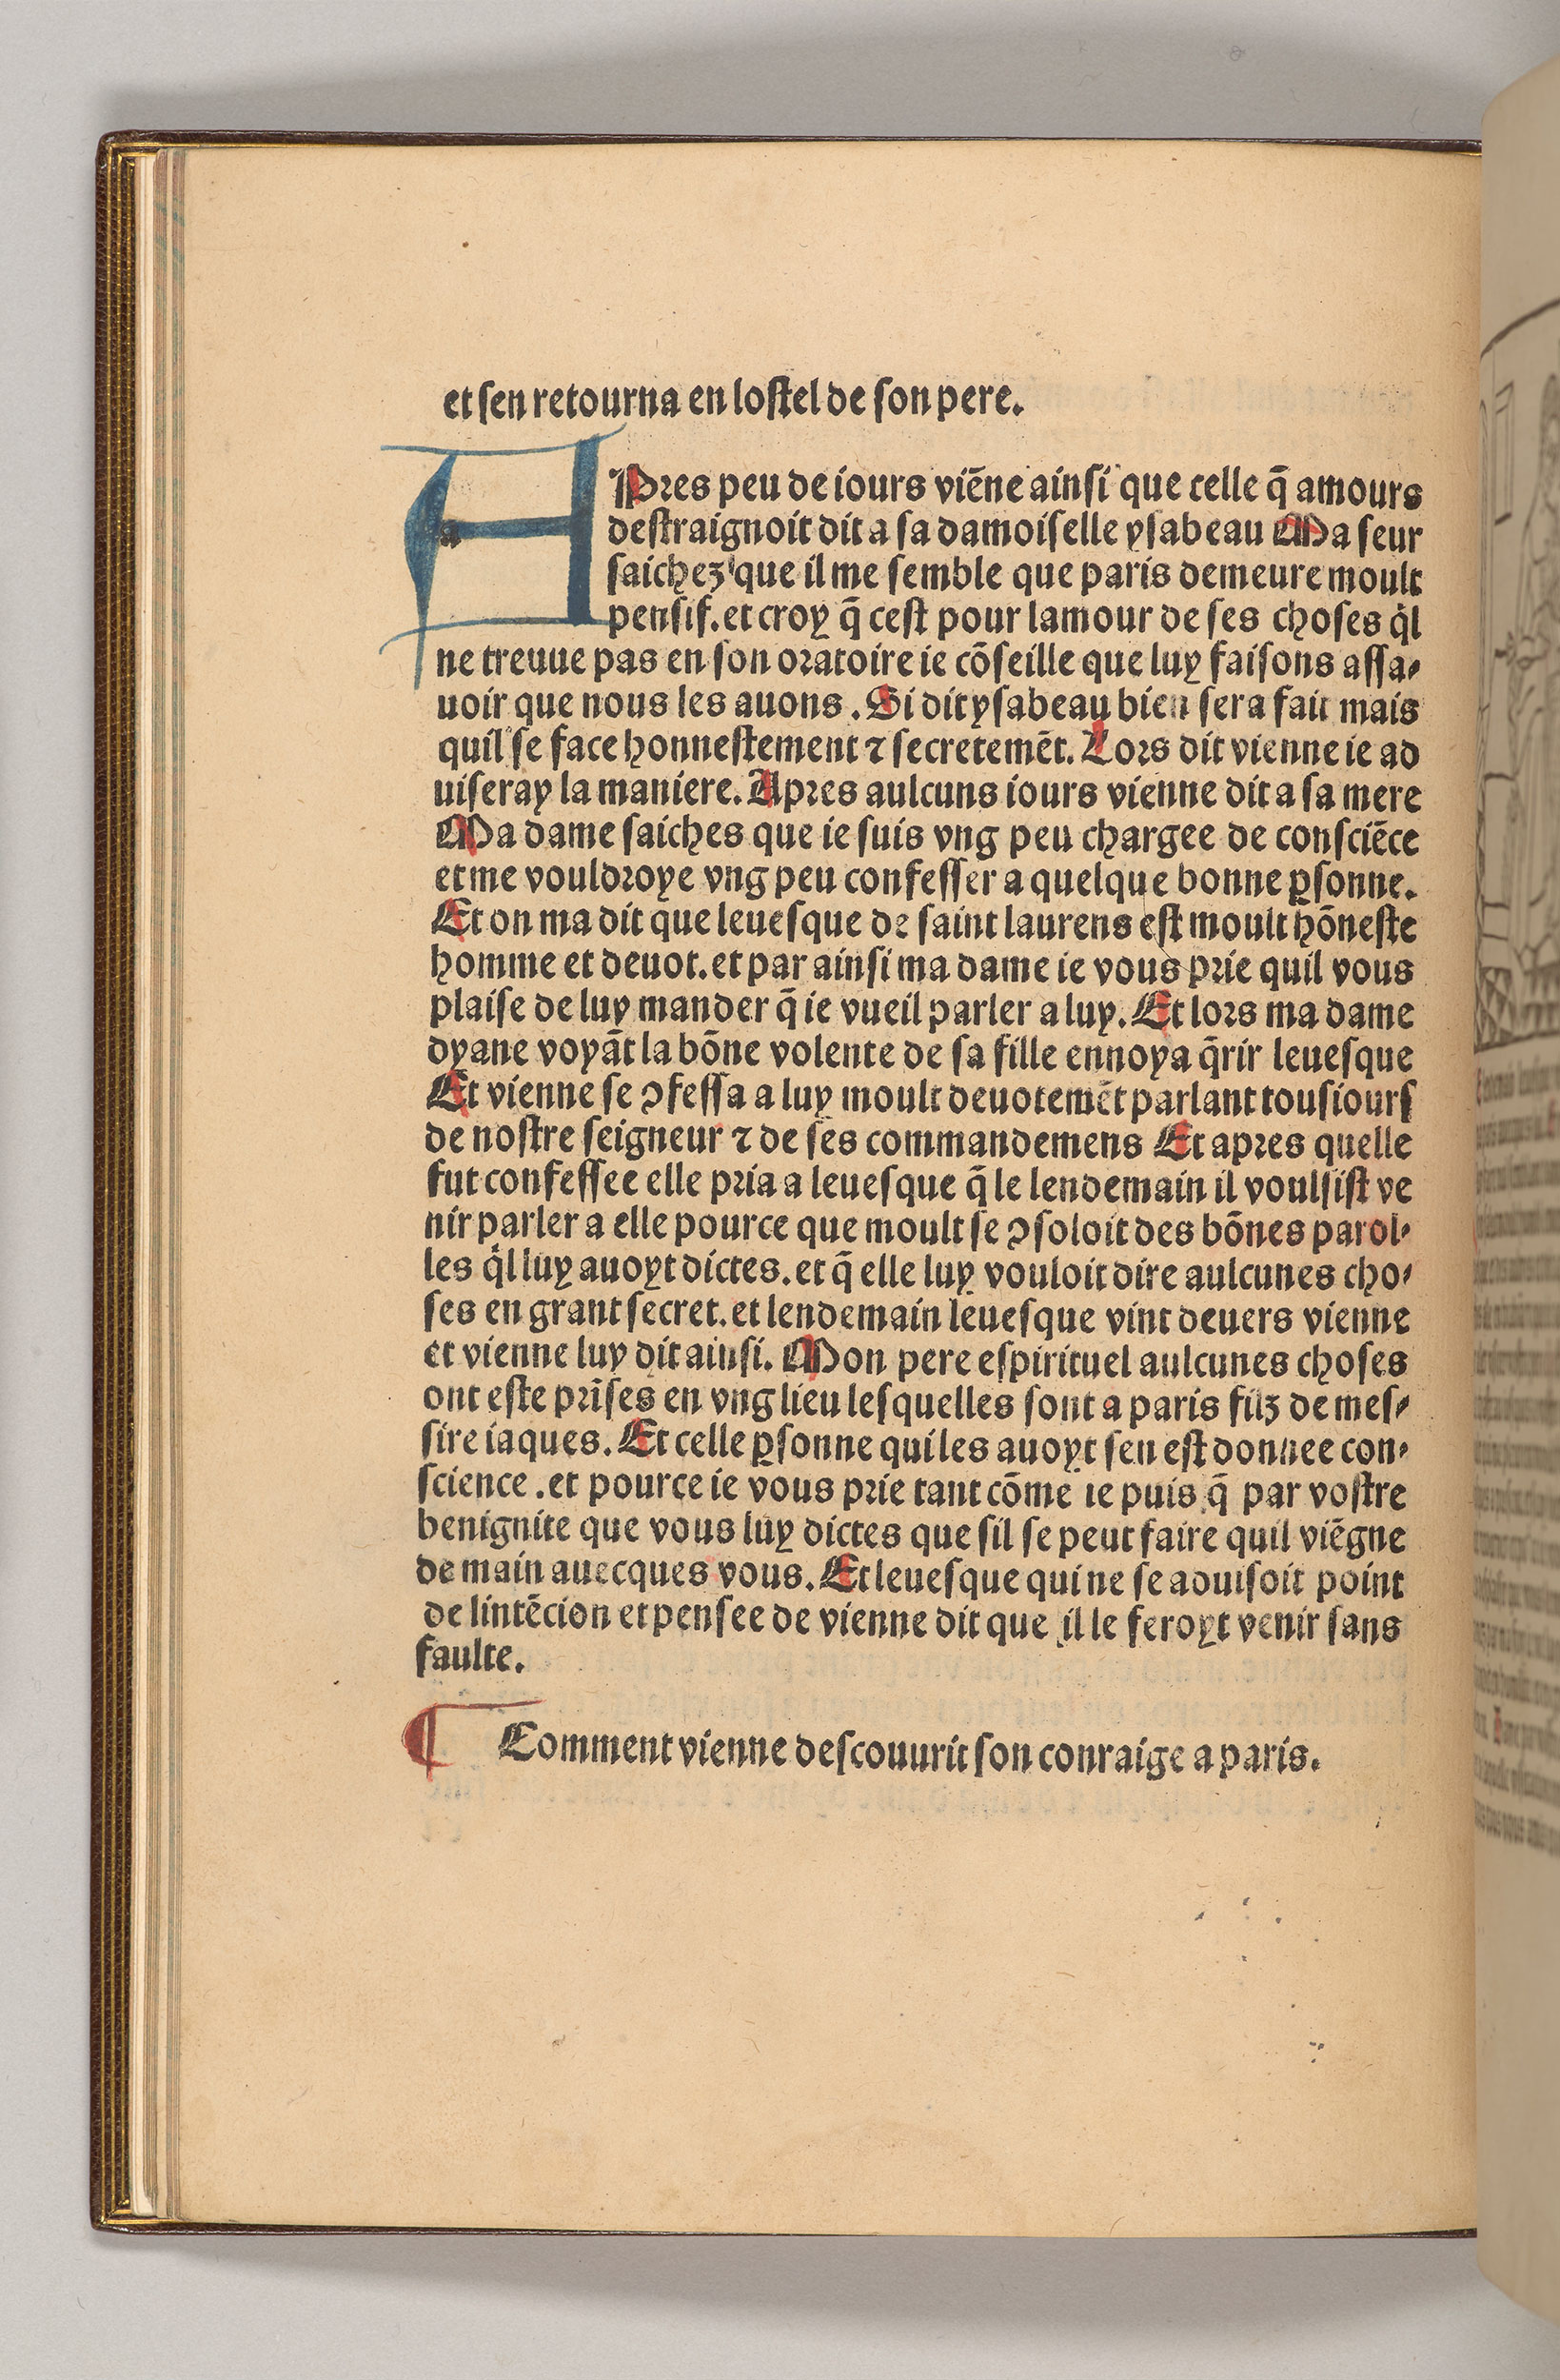 et sen retourna en lostel de son pere.
APres peu de iours viēne ainsi que celle q̄ amours
destraignoit dit a sa damoiselle ysabeau Ma seur
saichez que il me semble que paris demeure moult
pensif. et croy q̄ cest pour lamour de ses choses qͥl
ne treuue pas en son oratoire ie cōseille que luy faisons assa⸗
uoir que nous les auons. Si dit ysabeau bien sera fait mais
quil se face honnestement ⁊ secretemēt. Lors dit vienne ie ad
uiseray la maniere. Apres aulcuns iours vienne dit a sa mere
Ma dame saiches que ie suis vng peu chargee de consciēce
et me vouldroye vng peu confesser a quelque bonne ꝑsonne.
Et on ma dit que leuesque de saint laurens est moult hōneste
homme et deuot. et par ainsi ma dame ie vous prie quil vous
plaise de luy mander q̄ ie vueil parler a luy. Et lors ma dame
dyane voyāt la bōne volente de sa fille ennoya q̄rir leuesque
Et vienne se ꝯfessa a luy moult deuotemēt parlant tousiours
de nostre seigneur ⁊ de ses commandemens Et apres quelle
fut confessee elle pria a leuesque q̄ le lendemain il voulsist ve
nir parler a elle pource que moult se ꝯsoloit des bōnes parol⸗
les qͥl luy auoyt dictes. et q̄ elle luy vouloit dire aulcunes cho⸗
ses en grant secret. et lendemain leuesque vint deuers vienne
et vienne luy dit ainsi. Mon pere espirituel aulcunes choses
ont este prīses en vng lieu lesquelles sont a paris filz de mes⸗
sire iaques. Et celle ꝑsonne qui les auoyt sen est donnee con⸗
science. et pource ie vous prie tant cōme ie puis q̄ par vostre
benignite que vous luy dictes que sil se peut faire quil viēgne
de main auecques vous. Et leuesque qui ne se aduisoit point
de lintēcion et pensee de vienne dit que il le feroyt venir sans
faulte.
¶ Comment vienne descouurit son conraige a paris.